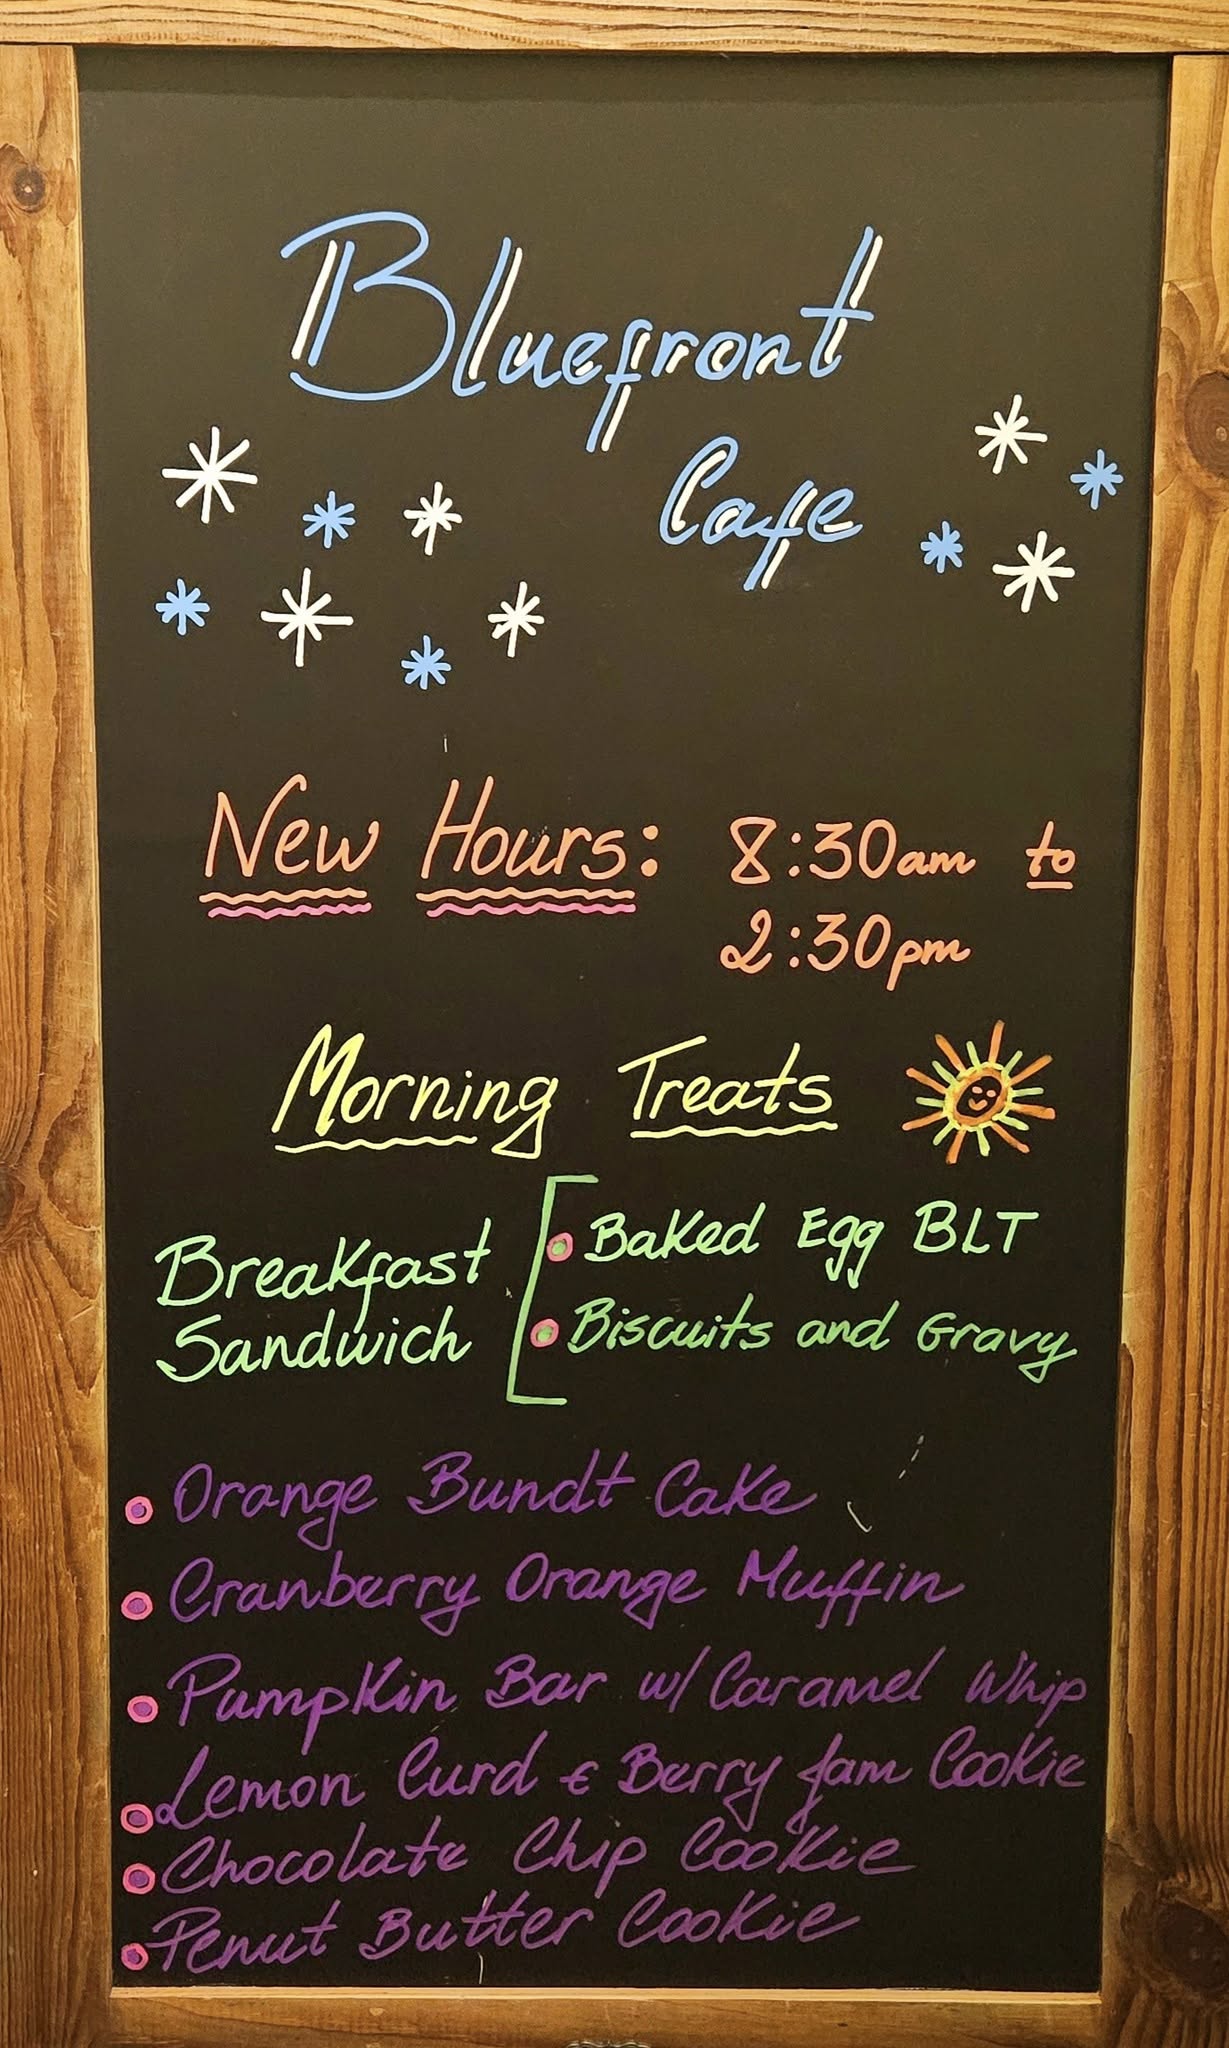 Bluefront
Cafe
New Hours: 8:30am to
2:30pm
Morning Treats
Breakfast
Sandwich
Baked Egg BLT
Biscuits and Gravy
Orange Bundt Cake
Cranberry Orange Muffin
Pumpkin Bar w/ Caramel Whip
Lemon Curd & Berry Jam Cookie
Chocolate Chip Cookie
Penut Butter Cookie